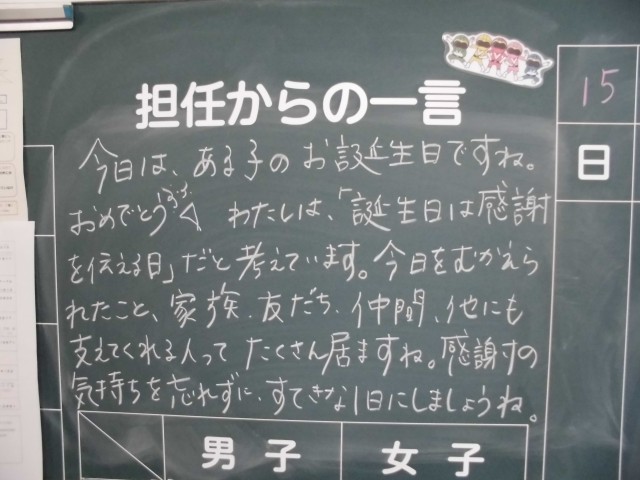 担任からの一言
15
日
今日は、ある子のお誕生日ですね。
おめでとう わたしは、「誕生日は感謝
を伝える日」だと考えています。今日をむかえら
れたこと、家族、友だち、仲間、他にも
支えてくれる人って たくさん居ますね。感謝の
気持ちを忘れずに、すてきな1日にしましょうね。
男子
女子